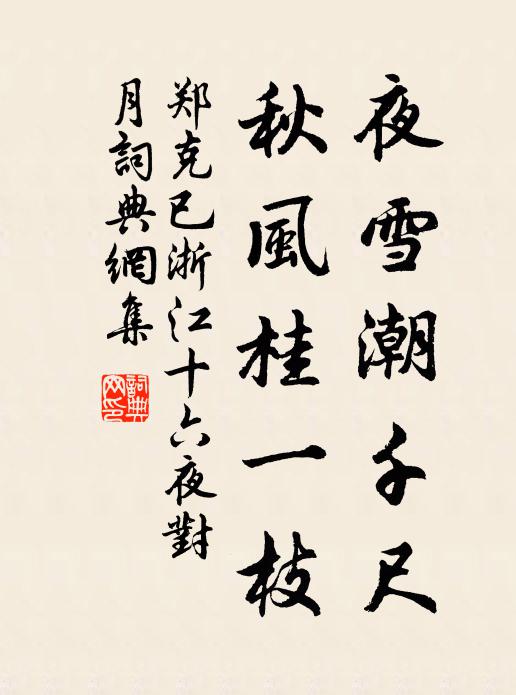 夜雪潮千尺
秋風桂一枝
郑克已浙江十六夜對
月詞典網集
詞典网印